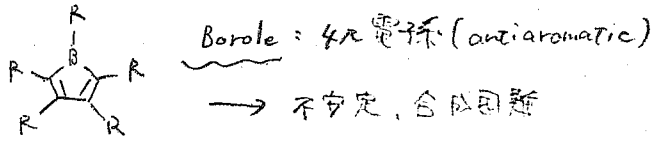 R
B
R
R
R
R
Borole : 4π電子系 (antiaromatic)
→ 不安定、合成困難